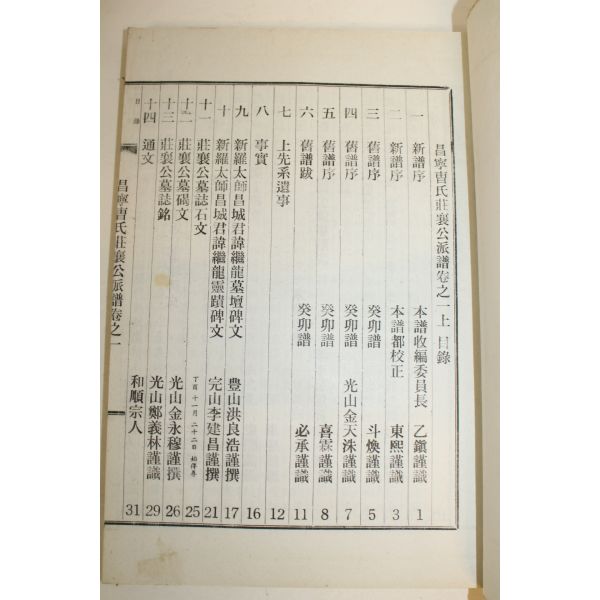 昌寧曺氏莊襄公派譜卷之一上 目錄
一 新譜序 本譜收編委員長 乙鎭謹識 1
二 新譜序 本譜都校正 東熙謹識 3
三 舊譜序 癸卯譜 斗煥謹識 5
四 舊譜序 癸卯譜 光山金天洙謹識 7
五 舊譜序 癸卯譜 喜霖謹識 8
六 舊譜跋 癸卯譜 必承謹識 11
七 上先系遺事 12
八 事實 16
九 新羅太師昌城君諱繼龍墓壇碑文 豊山洪良浩謹撰 17
十 新羅太師昌城君諱繼龍靈蹟碑文 完山李建昌謹撰 21
十一 莊襄公墓誌石文 丁酉十一月二十二日 25
十二 莊襄公墓碣文 光山金永穆謹撰 26
十三 莊襄公墓誌銘 光山鄭義林謹識 29
十四 通文 和順宗人 31
目錄
昌寧曺氏莊襄公派譜卷之一